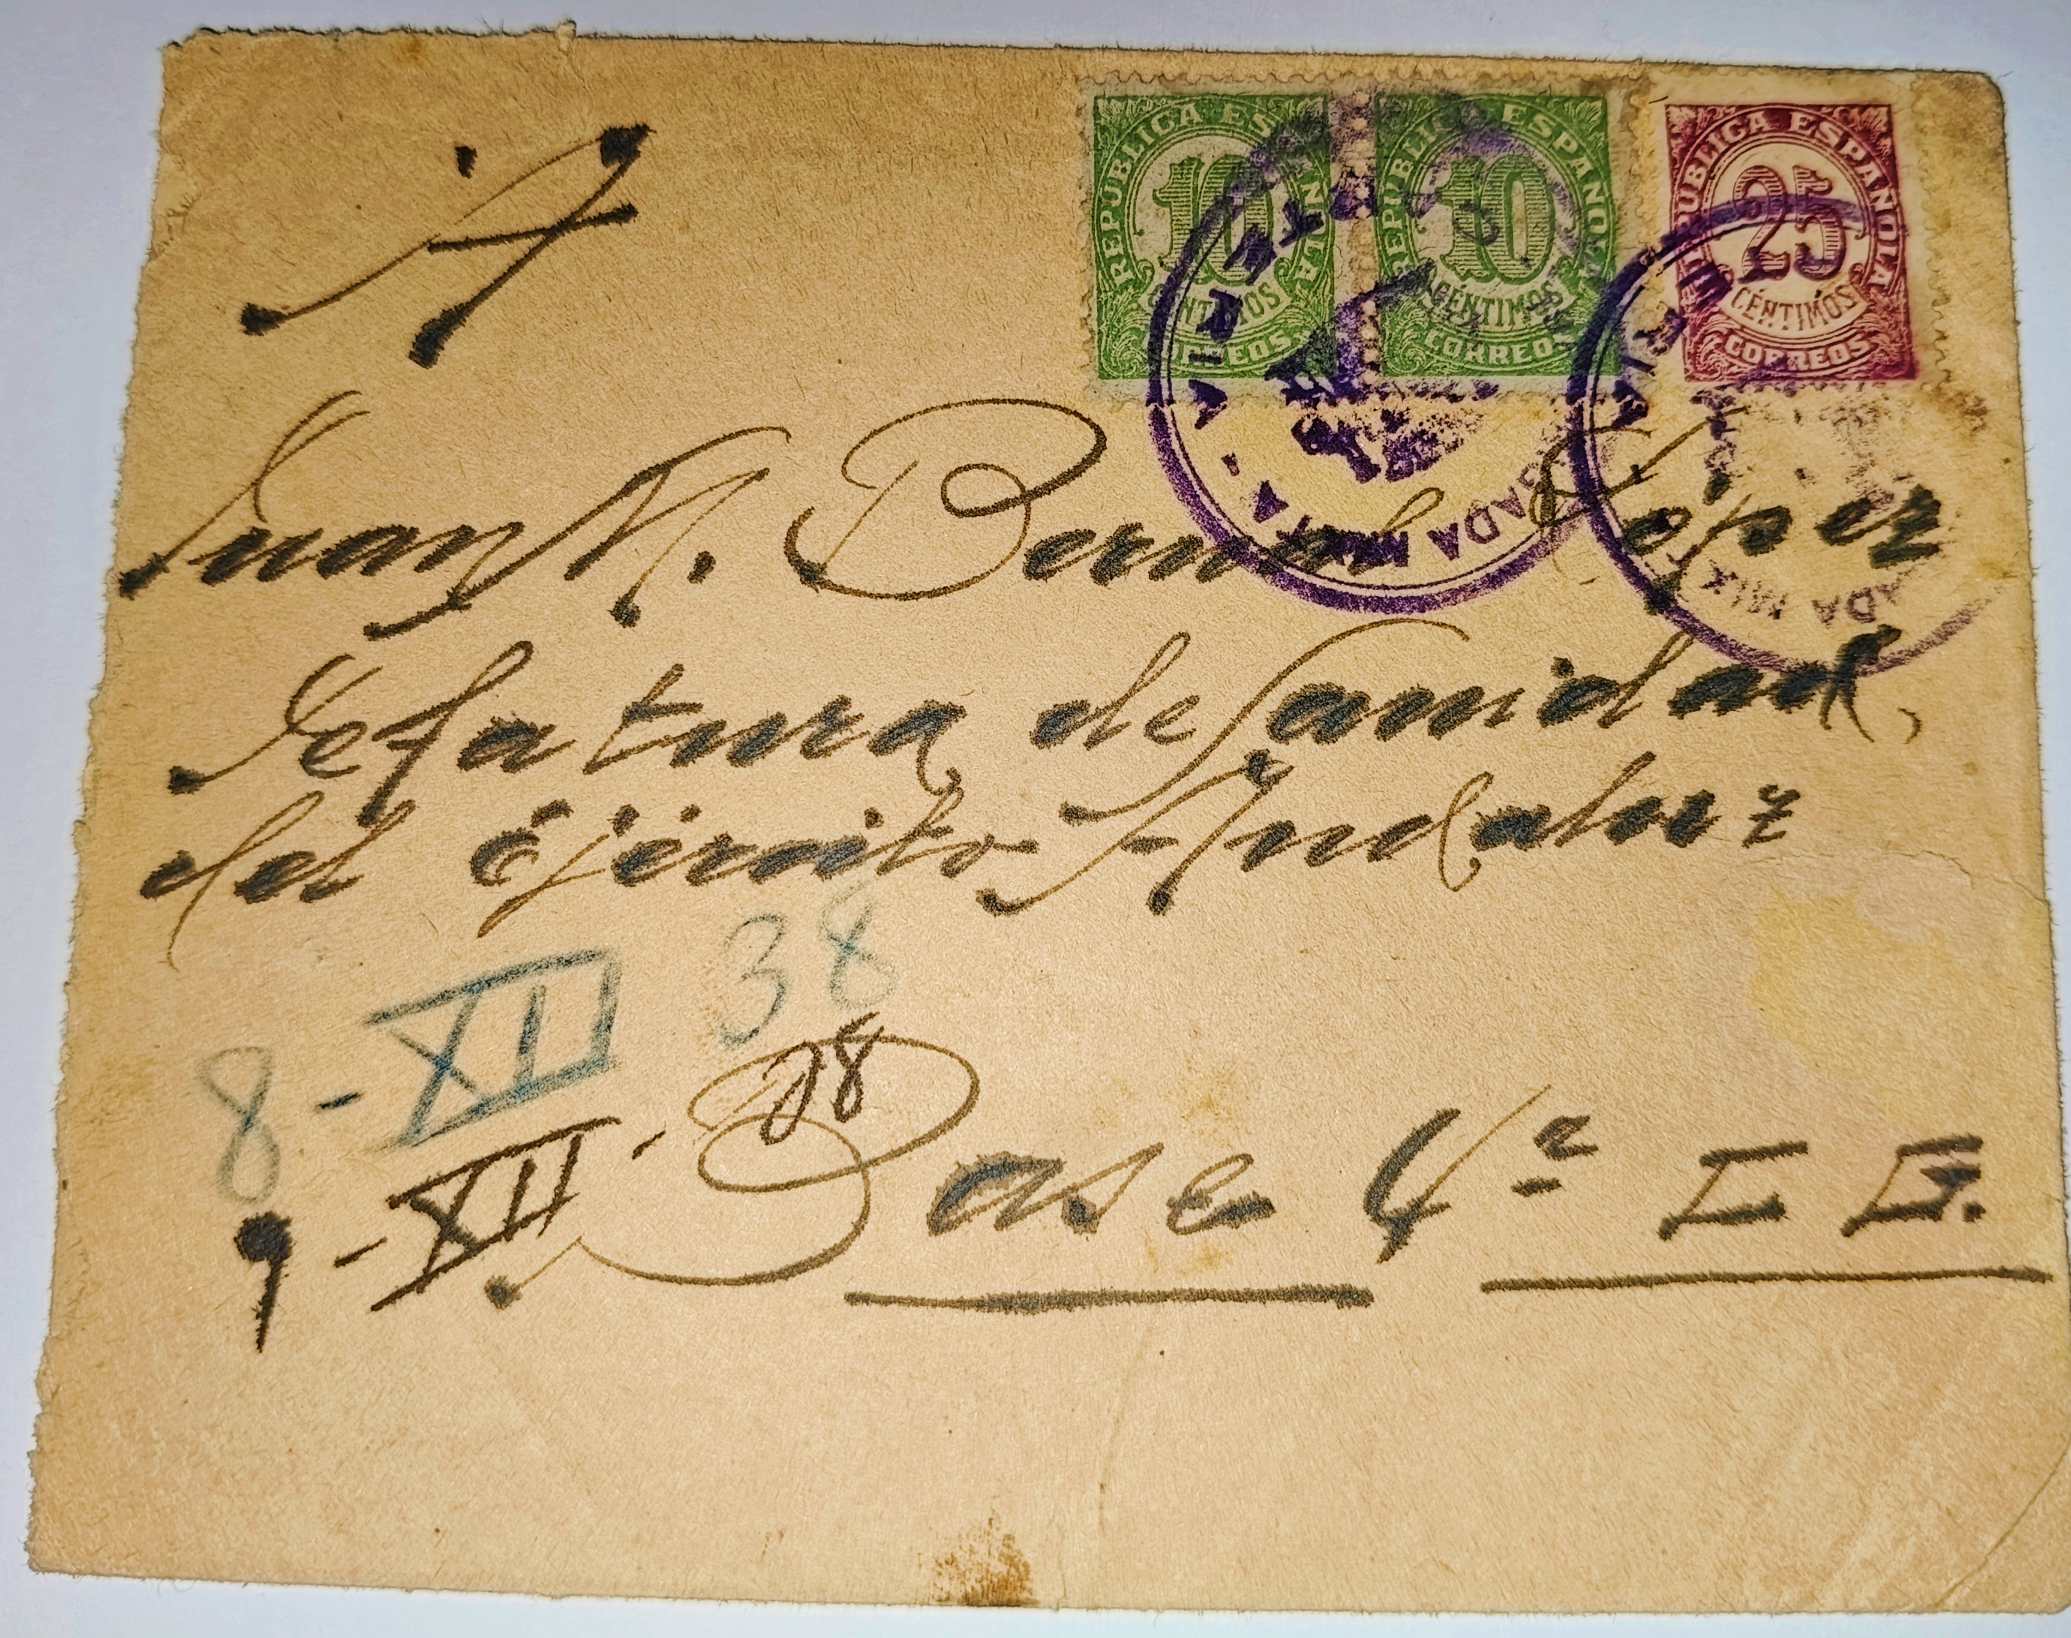 REPÚBLICA ESPAÑOLA
10
CÉNTIMOS
CORREOS
REPÚBLICA ESPAÑOLA
10
CÉNTIMOS
CORREOS
REPÚBLICA ESPAÑOLA
25
CÉNTIMOS
CORREOS
A
Juan M. Bernal López
Jefatura de Sanidad,
del Ejército Andaluz
8-XII 38
9-XII-
Base 4ª C C.